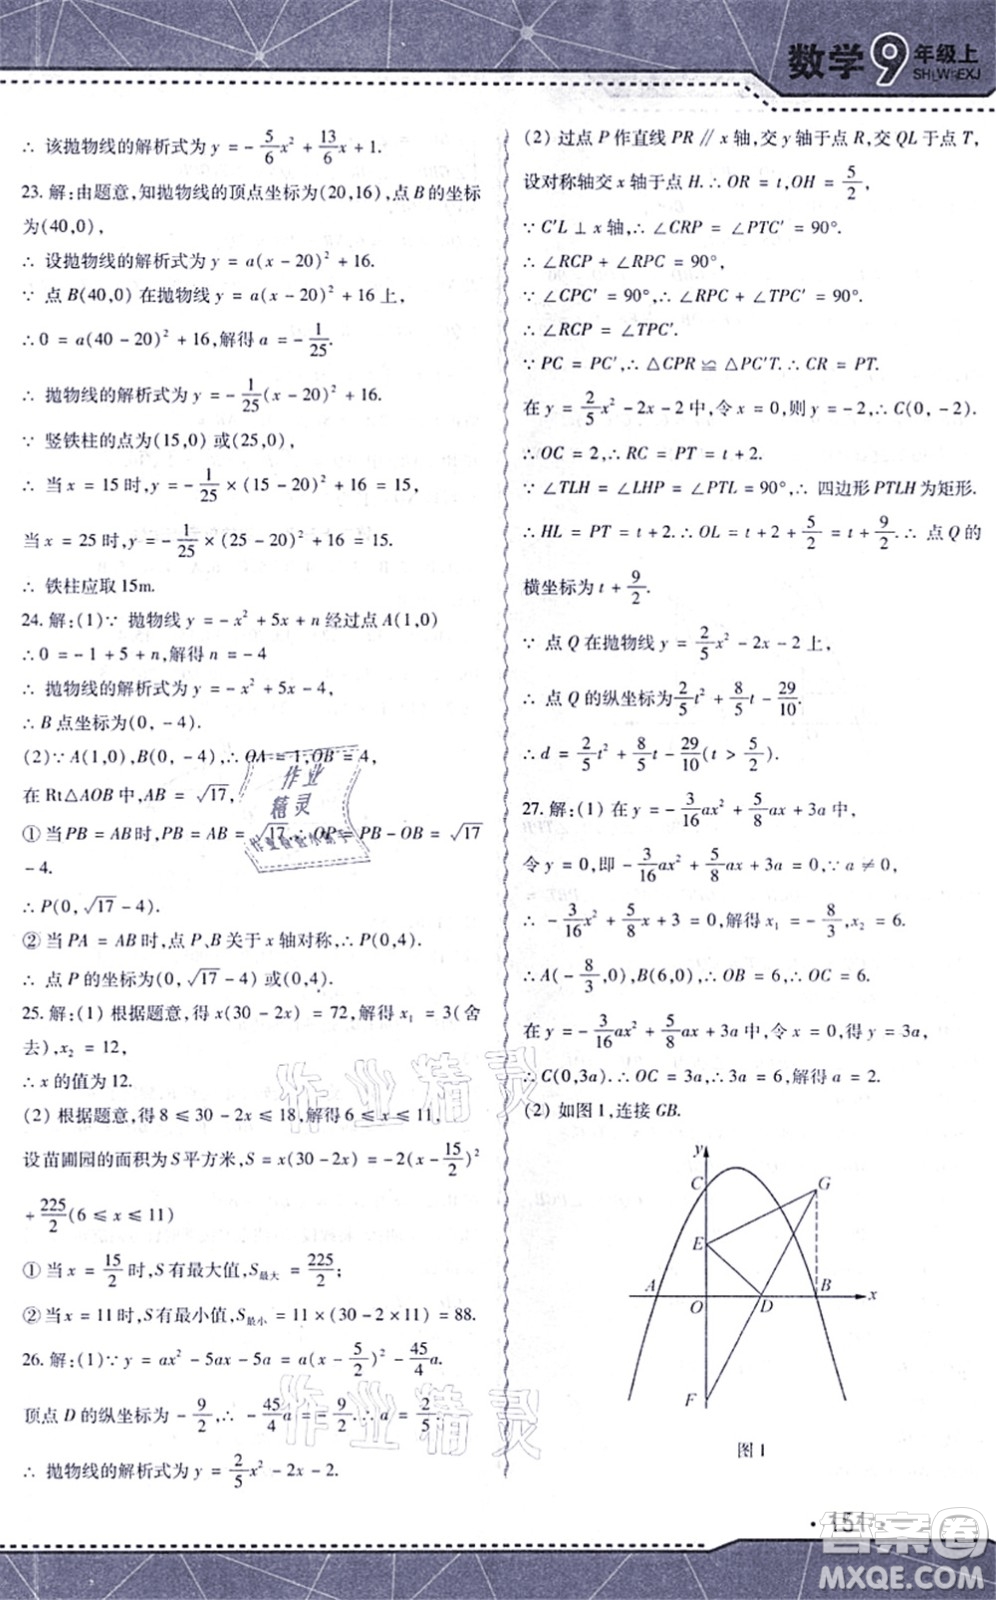 数学9年级上
SHLWHEXJ
∴ 该抛物线的解析式为 y = -5/6x² + 13/6x + 1.
23. 解:由题意,知抛物线的顶点坐标为(20,16),点 B 的坐标
为(40,0),
∴ 设抛物线的解析式为 y = a(x - 20)² + 16.
∵ 点 B(40,0) 在抛物线 y = a(x - 20)² + 16 上,
∴ 0 = a(40 - 20)² + 16,解得 a = -1/25.
∴ 抛物线的解析式为 y = -1/25(x - 20)² + 16.
∵ 竖铁柱的点为(15,0) 或(25,0),
∴ 当 x = 15 时,y = -1/25 × (15 - 20)² + 16 = 15,
当 x = 25 时,y = -1/25 × (25 - 20)² + 16 = 15.
∴ 铁柱应取 15m.
24. 解:(1)∵ 抛物线 y = - x² + 5x + n 经过点 A(1,0)
∴ 0 = - 1 + 5 + n,解得 n = - 4
∴ 抛物线的解析式为 y = - x² + 5x - 4,
∴ B 点坐标为(0, - 4).
(2)∵ A(1,0),B(0, - 4),∴ OA = 1,OB = 4,
在 Rt△AOB 中,AB = √17,
① 当 PB = AB 时,PB = AB = √17.∴ OP = PB - OB = √17
- 4.
∴ P(0,√17 - 4).
② 当 PA = AB 时,点 P、B 关于 x 轴对称,∴ P(0,4).
∴ 点 P 的坐标为(0,√17 - 4) 或(0,4).
25. 解:(1) 根据题意,得 x(30 - 2x) = 72,解得 x₁ = 3(舍
去),x₂ = 12,
∴ x 的值为 12.
(2) 根据题意,得 8 ≤ 30 - 2x ≤ 18,解得 6 ≤ x ≤ 11,
设苗圃园的面积为 S 平方米,S = x(30 - 2x) = - 2(x - 15/2)²
+ 225/2(6 ≤ x ≤ 11)
① 当 x = 15/2 时,S 有最大值,S最大 = 225/2;
② 当 x = 11 时,S 有最小值,S最小 = 11 × (30 - 2 × 11) = 88.
26. 解:(1)∵ y = ax² - 5ax - 5a = a(x - 5/2)² - 45/4a.
顶点 D 的纵坐标为 - 9/2,∴ - 45/4a = - 9/2.∴ a = 2/5.
∴ 抛物线的解析式为 y = 2/5x² - 2x - 2.
(2) 过点 P 作直线 PR // x 轴,交 y 轴于点 R,交 QL 于点 T,
设对称轴交 x 轴于点 H.∴ OR = t,OH = 5/2,
∵ C'L ⊥ x 轴,∴ ∠CRP = ∠PTC' = 90°.
∴ ∠RCP + ∠RPC = 90°,
∵ ∠CPC' = 90°,∴ ∠RPC + ∠TPC' = 90°.
∴ ∠RCP = ∠TPC'.
∵ PC = PC',∴ △CPR ≌ △PC'T.∴ CR = PT.
在 y = 2/5x² - 2x - 2 中,令 x = 0,则 y = - 2,∴ C(0, - 2).
∴ OC = 2,∴ RC = PT = t + 2.
∵ ∠TLH = ∠LHP = ∠PTL = 90°,∴ 四边形 PTLH 为矩形.
∴ HL = PT = t + 2.∴ OL = t + 2 + 5/2 = t + 9/2.∴ 点 Q 的
横坐标为 t + 9/2.
∵ 点 Q 在抛物线 y = 2/5x² - 2x - 2 上,
∴ 点 Q 的纵坐标为 2/5t² + 8/5t - 29/10.
∴ d = 2/5t² + 8/5t - 29/10(t > 5/2).
27. 解:(1) 在 y = - 3/16ax² + 5/8ax + 3a 中,
令 y = 0,即 - 3/16ax² + 5/8ax + 3a = 0,∵ a ≠ 0,
∴ - 3/16x² + 5/8x + 3 = 0,解得 x₁ = - 8/3,x₂ = 6.
∴ A( - 8/3,0),B(6,0),∴ OB = 6,∴ OC = 6.
在 y = - 3/16ax² + 5/8ax + 3a 中,令 x = 0,得 y = 3a,
∴ C(0,3a).∴ OC = 3a,∴ 3a = 6,解得 a = 2.
(2) 如图 1,连接 GB.
y
C
G
E
A
O
D
B
x
F
图 1
· 151 ·
作业
精灵
作业精灵
作业精灵
答案圈
MXQE.COM